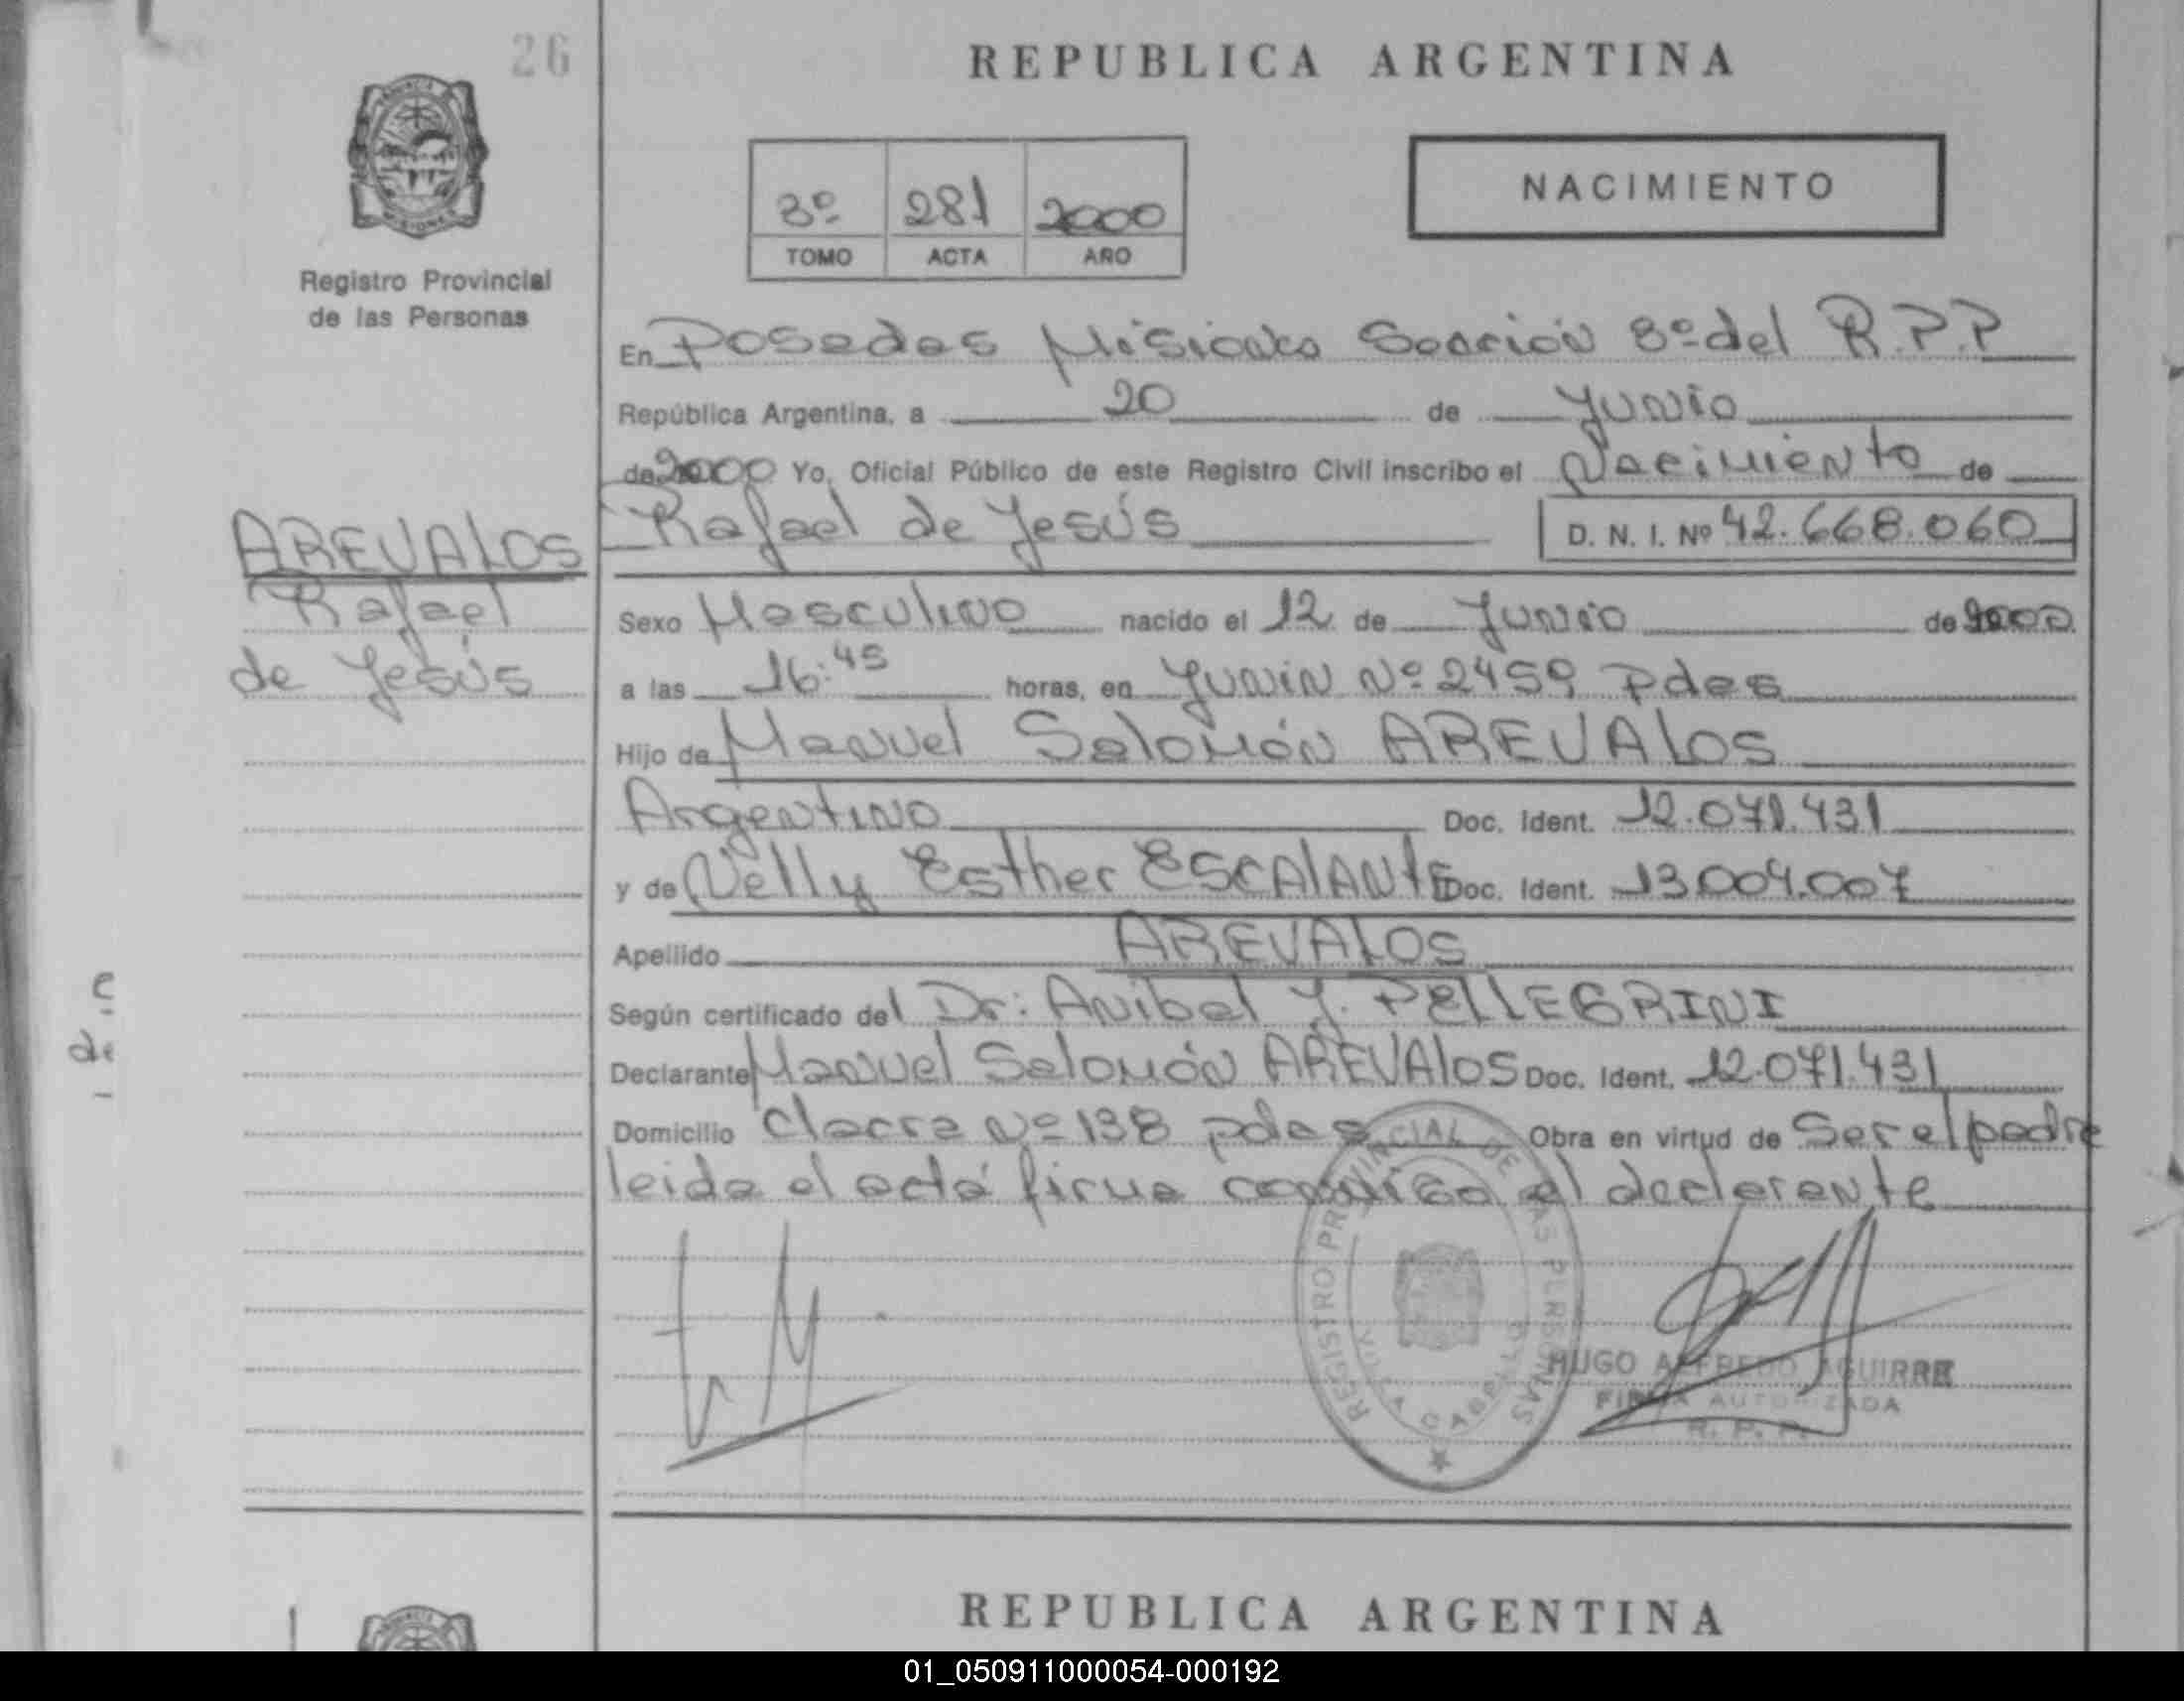 26
REPUBLICA ARGENTINA
NACIMIENTO
3º 281 2000
TOMO ACTA AÑO
Registro Provincial
de las Personas
En Posadas Misiones Sección 8º del R.P.P
República Argentina, a 20 de Junio
de 2000 Yo, Oficial Público de este Registro Civil inscribo el Nacimiento de
Rafael de Jesús D. N. I. Nº 42.668.060
AREVALOS
Rafael
de Jesús
Sexo Masculino nacido el 12 de Junio de 2000
a las 16:45 horas, en Junin Nº 2459 Pdas
Hijo de Manuel Salomón AREVALOS
Argentino Doc. Ident. 12.071.431
y de Nelly Esther ESCALANTE Doc. Ident. 13.009.007
Apellido AREVALOS
Según certificado del Dr: Anibal J. PELLEGRINI
Declarante Manuel Salomón AREVALOS Doc. Ident. 12.071.431
Domicilio Nº 138 pdas Obra en virtud de Ser el padre
leida el acta firma conmigo el declarante
REGISTRO PROVINCIAL DE LAS PERSONAS
HUGO ALFREDO AGUIRRE
FIRMA AUTORIZADA
R. P. P.
REPUBLICA ARGENTINA
01_050911000054-000192